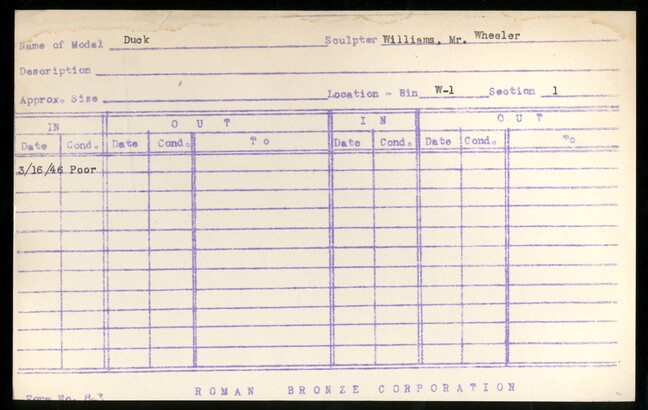 Name of Model Duck Sculptor Williams, Mr. Wheeler
Description
Approx. Size Location - Bin W-1 Section 1
IN OUT IN OUT
Date Cond. Date Cond. To Date Cond. Date Cond. To
3/16/46 Poor
Form No. 8-3 ROMAN BRONZE CORPORATION